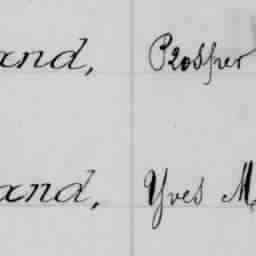 and, Prosper
and, Yves M